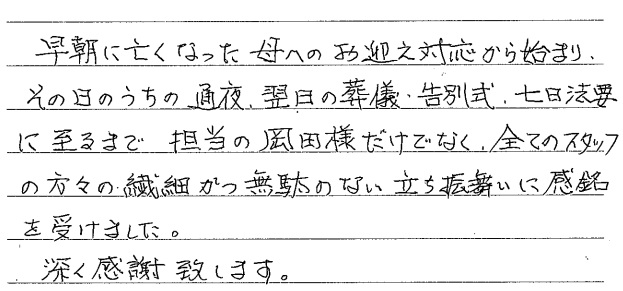 早朝に亡くなった母へのお迎え対応から始まり、
その日のうちの通夜、翌日の葬儀・告別式、七日法要
に至るまで担当の岡田様だけでなく、全てのスタッフ
の方々の繊細かつ無駄のない立ち振舞いに感銘
を受けました。
深く感謝致します。